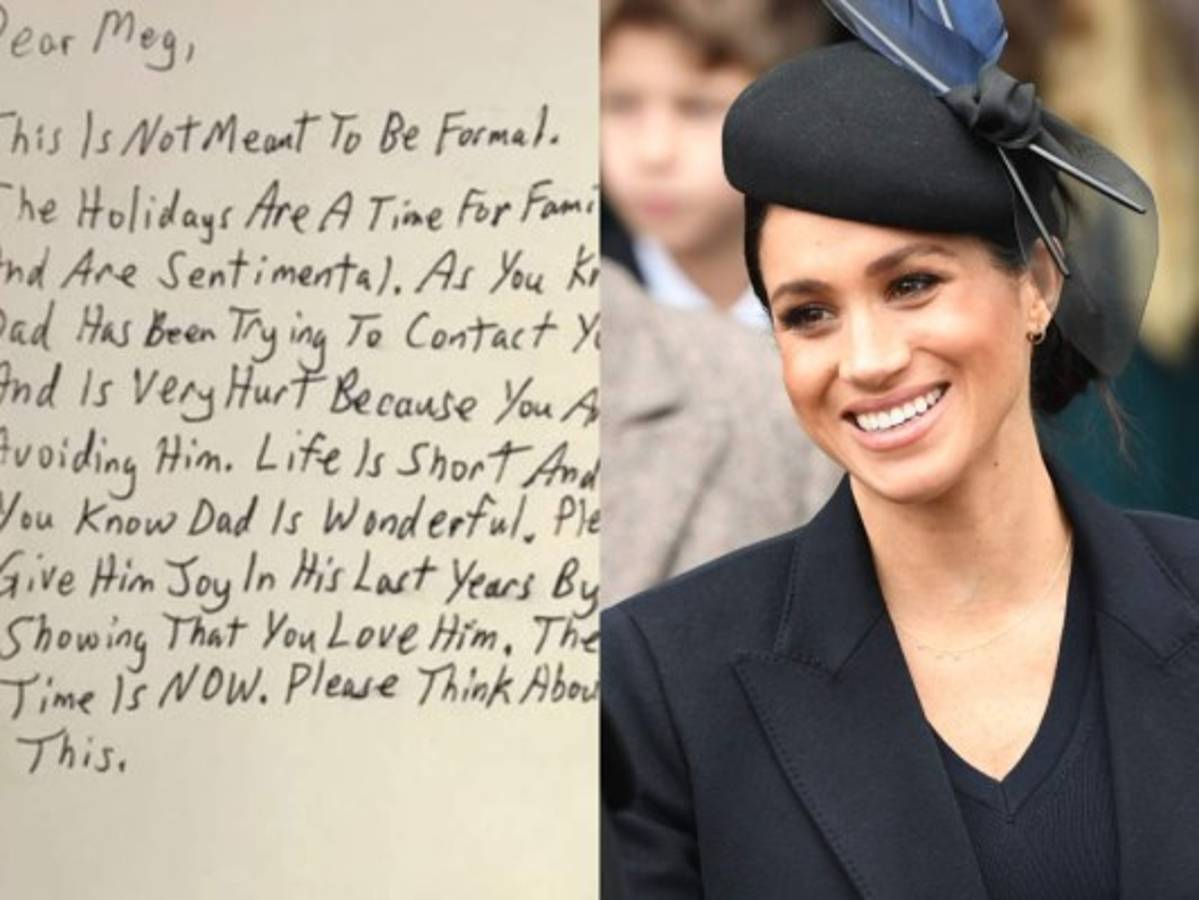 ear Meg,
This Is Not Meant To Be Formal.
The Holidays Are A Time For Fami
And Are Sentimental. As You Kn
Dad Has Been Trying To Contact Yo
And Is Very Hurt Because You A
Avoiding Him. Life Is Short And
You Know Dad Is Wonderful. Ple
Give Him Joy In His Last Years By
Showing That You Love Him. The
Time Is NOW. Please Think Abou
This.